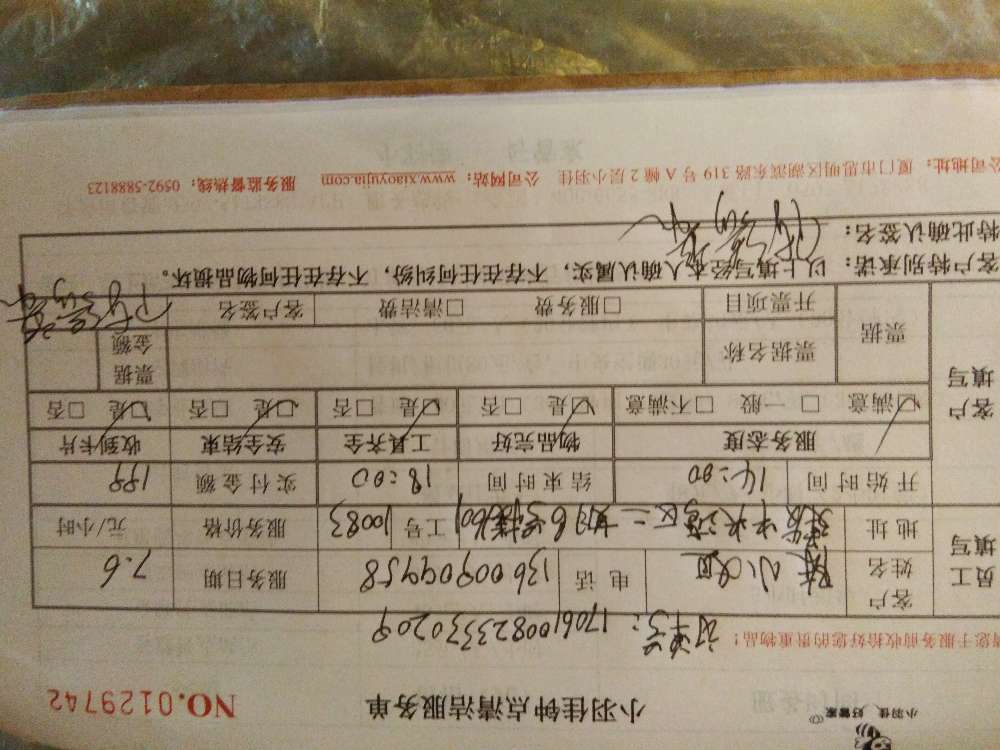 小羽佳 好管家
小羽佳钟点清洁服务单
NO.0129742
请您于服务前收拾好您的贵重物品！
订单号：1706100823330209
员工填写
客户姓名
陈小
电话
13600909958
服务日期
7.6
地址
二期6号楼601
工号
10083
服务价格
元/小时
开始时间
14:00
结束时间
18:00
实付金额
199
客户填写
服务态度
物品完好
工具齐全
安全结束
收到卡片
☑满意 □一般 □不满意
☑是 □否
☑是 □否
☑是 □否
☑是 □否
票据
票据名称
票据金额
开票项目
□服务费 □清洁费
客户签名
客户特别承诺：以上填写经本人确认属实，不存在任何纠纷，不存在任何物品损坏。
特此确认签名：
公司地址：厦门市思明区湖滨东路 319 号 A 幢 2 层小羽佳 公司网站：www.xiaoyujia.com 服务监督热线：0592-5888123